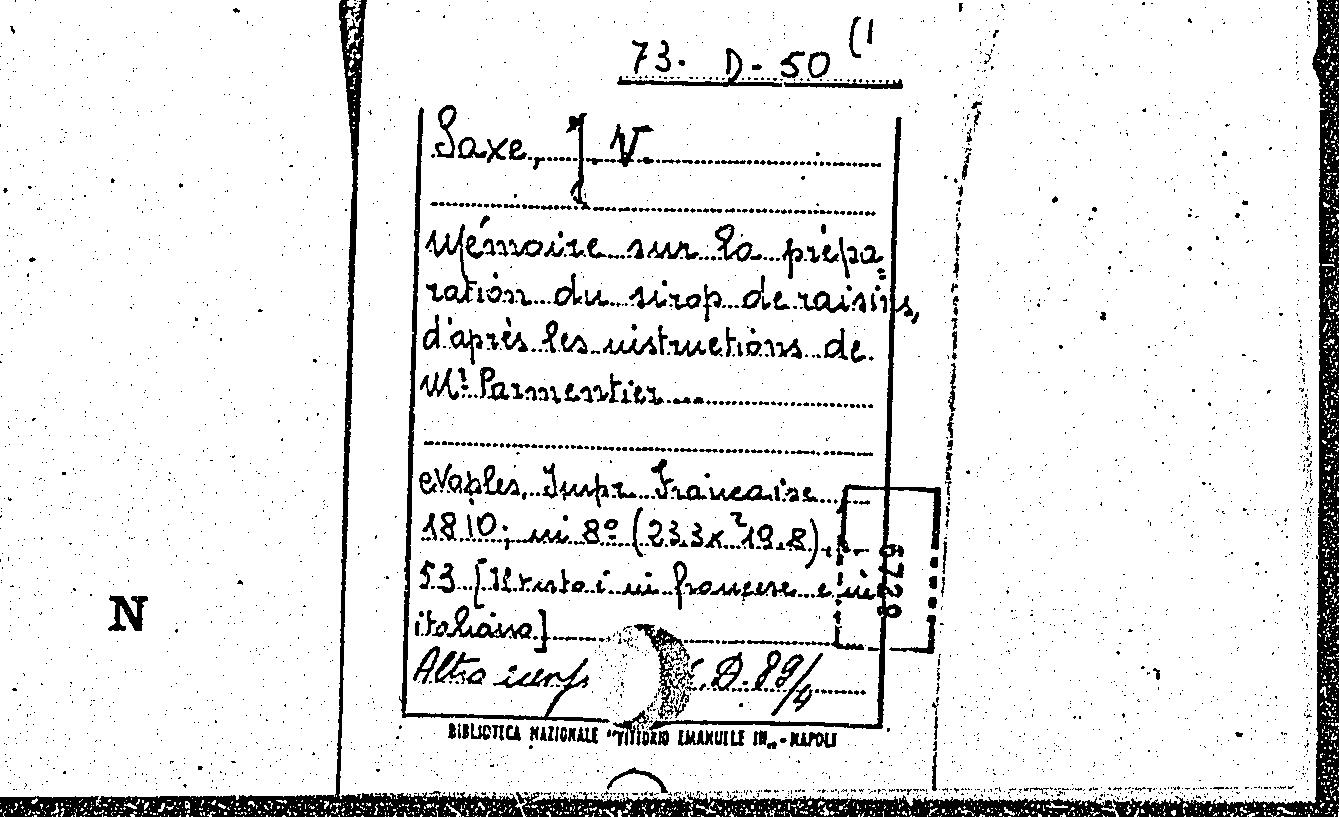 73. D-50 (1
Saxe, J. V.
Mémoire sur la prépa=
ration du sirop de raisins,
d'après les instructions de
Mr. Parmentier....
Naples, Impr. Française
1810; in 8º (23.3x19.8),
53 [Il testo è in francese e in
italiano]
Altro D. 89/4
6729
N
BIBLIOTECA NAZIONALE "VITTORIO EMANUELE III„ - NAPOLI